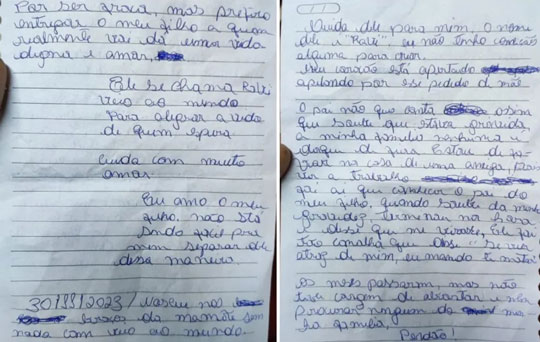 Por ser fraca, mas prefiro
entregar o meu filho a quem
realmente vai dá uma vida
digna e amar,
Ele se chama Ravi
veio ao mundo
para alegrar a vida
de quem espera
cuida com muito
amor.
Eu amo o meu
filho, não stá
sendo fácil para
mim separar dele
dessa maneira.
30/11/2023/ Nasceu nos
braços da mamãe sem
nada com veio ao mundo.
Cuida dele para mim, O nome
dele é "Ravi", eu não tenho condição
alguma para criar.
Meu coração está apertado
apelando por esse pedido de mãe
O pai não quis conta
que soube que estava grávida,
a minha família nenhuma é
daqui de
na casa de uma amiga, para
vir a trabalho
foi aí que conheci o pai do
meu filho, quando soube da minha
gravidez, terminou na hora
e disse que me virasse, ele foi
tão canalha que disse "se vir
atrás de mim, eu mando te matar"
os meses passaram, mas não
tive coragem de abortar e nem
procurar ninguém da minha
família,
Perdão!